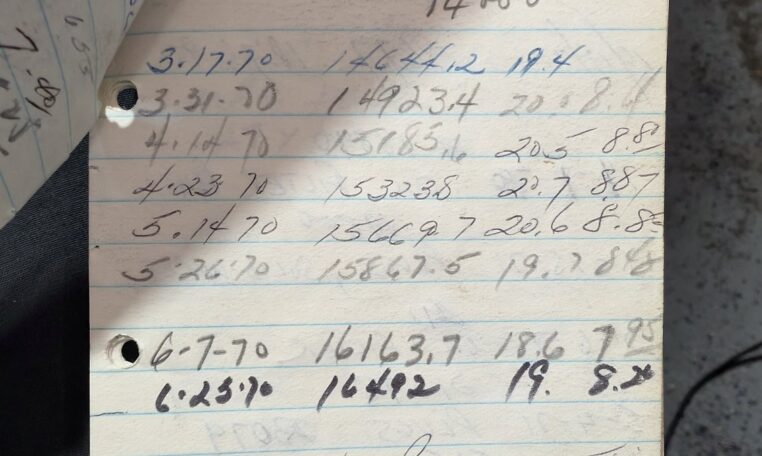 3.17.70 14644.2 19.4
3.31.70 14923.4 8.4
4.14 70 15185.6 20.5
4.23 70 15323.8 20.7 8.87
5.14 70 15669.7 20.6
5.26.70 15867.5 19.7 8.48
6-7-70 16163.7 18.6 7.95
6.23.70 16492 19.